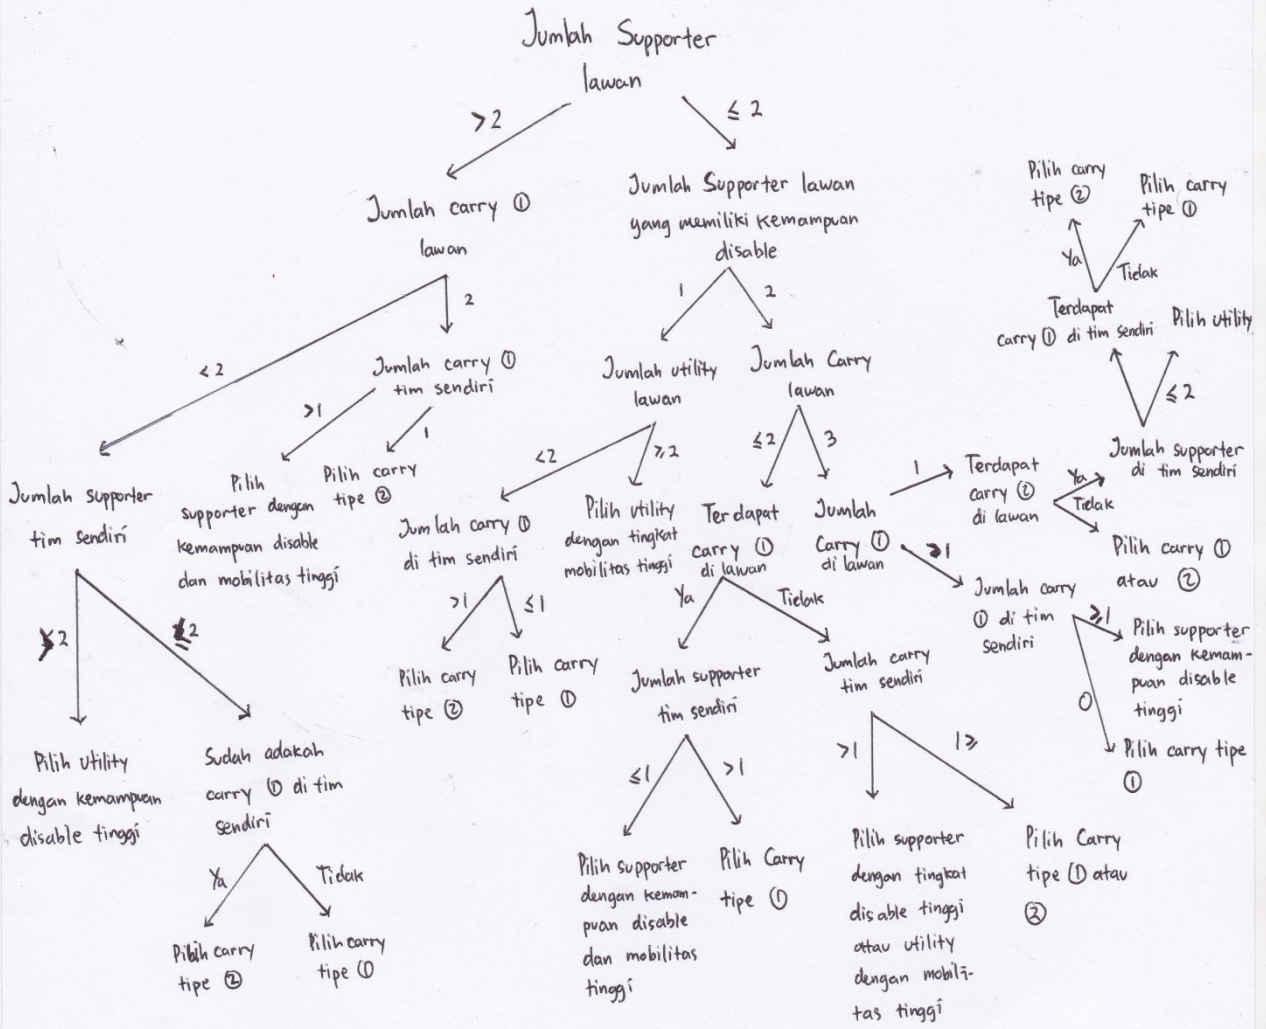 Jumlah Supporter
lawan
>2
≤ 2
Jumlah carry ①
lawan
Jumlah Supporter lawan
yang memiliki kemampuan
disable
<2
2
Jumlah carry ①
tim sendiri
>1
1
Pilih
supporter dengan
kemampuan disable
dan mobilitas tinggi
Pilih carry
tipe ②
Jumlah supporter
tim sendiri
2
≤2
Pilih utility
dengan kemampuan
disable tinggi
Sudah adakah
carry ① di tim
sendiri
Ya
Tidak
Pilih carry
tipe ②
Pilih carry
tipe ①
1
2
Jumlah utility
lawan
<2
≥2
Jumlah carry ①
di tim sendiri
>1
≤1
Pilih carry
tipe ②
Pilih carry
tipe ①
Pilih utility
dengan tingkat
mobilitas tinggi
Jumlah Carry
lawan
≤2
3
Terdapat
carry ①
di lawan
Ya
Tidak
Jumlah supporter
tim sendiri
≤1
>1
Pilih supporter
dengan kemam-
puan disable
dan mobilitas
tinggi
Pilih Carry
tipe ①
Jumlah carry
tim sendiri
>1
1≥
Pilih supporter
dengan tingkat
disable tinggi
atau utility
dengan mobili-
tas tinggi
Pilih Carry
tipe ① atau
②
Jumlah
Carry ①
di lawan
1
Terdapat
carry ②
di lawan
Ya
Tidak
Jumlah supporter
di tim sendiri
≤2
Pilih utility
Terdapat
carry ① di tim sendiri
Ya
Tidak
Pilih carry
tipe ②
Pilih carry
tipe ①
Pilih carry ①
atau ②
Jumlah carry
① di tim
sendiri
≥1
Pilih supporter
dengan kemam-
puan disable
tinggi
0
Pilih carry tipe
①